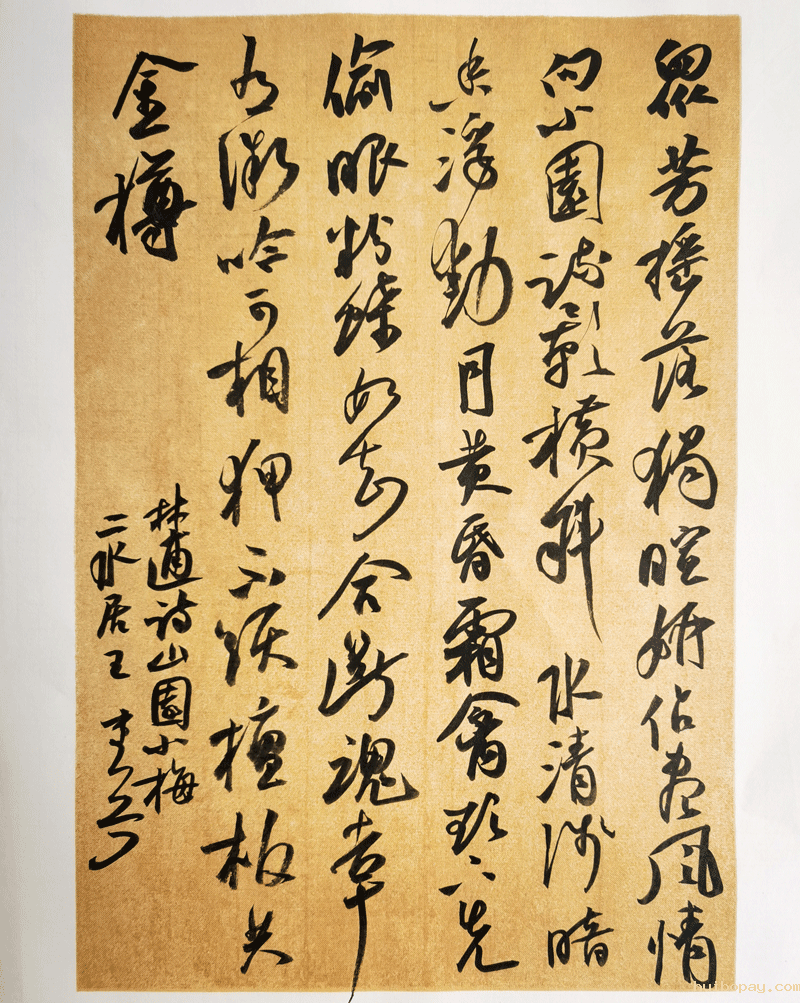 眾芳搖落獨暄妍佔盡風情
向小園疏影橫斜水清淺暗
香浮動月黃昏霜禽欲下先
偷眼粉蝶如知合斷魂幸
有微吟可相狎不須檀板共
金樽
林逋詩山園小梅
二水居王